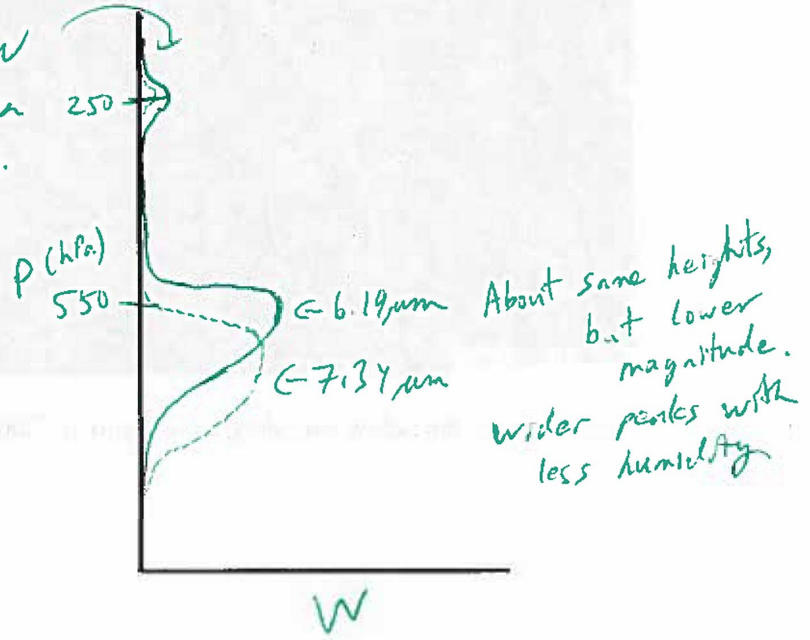 250
P (hPa)
550
← 6.19 μm
← 7.34 μm
About same heights,
but lower
magnitude.
wider peaks with
less humidity
W